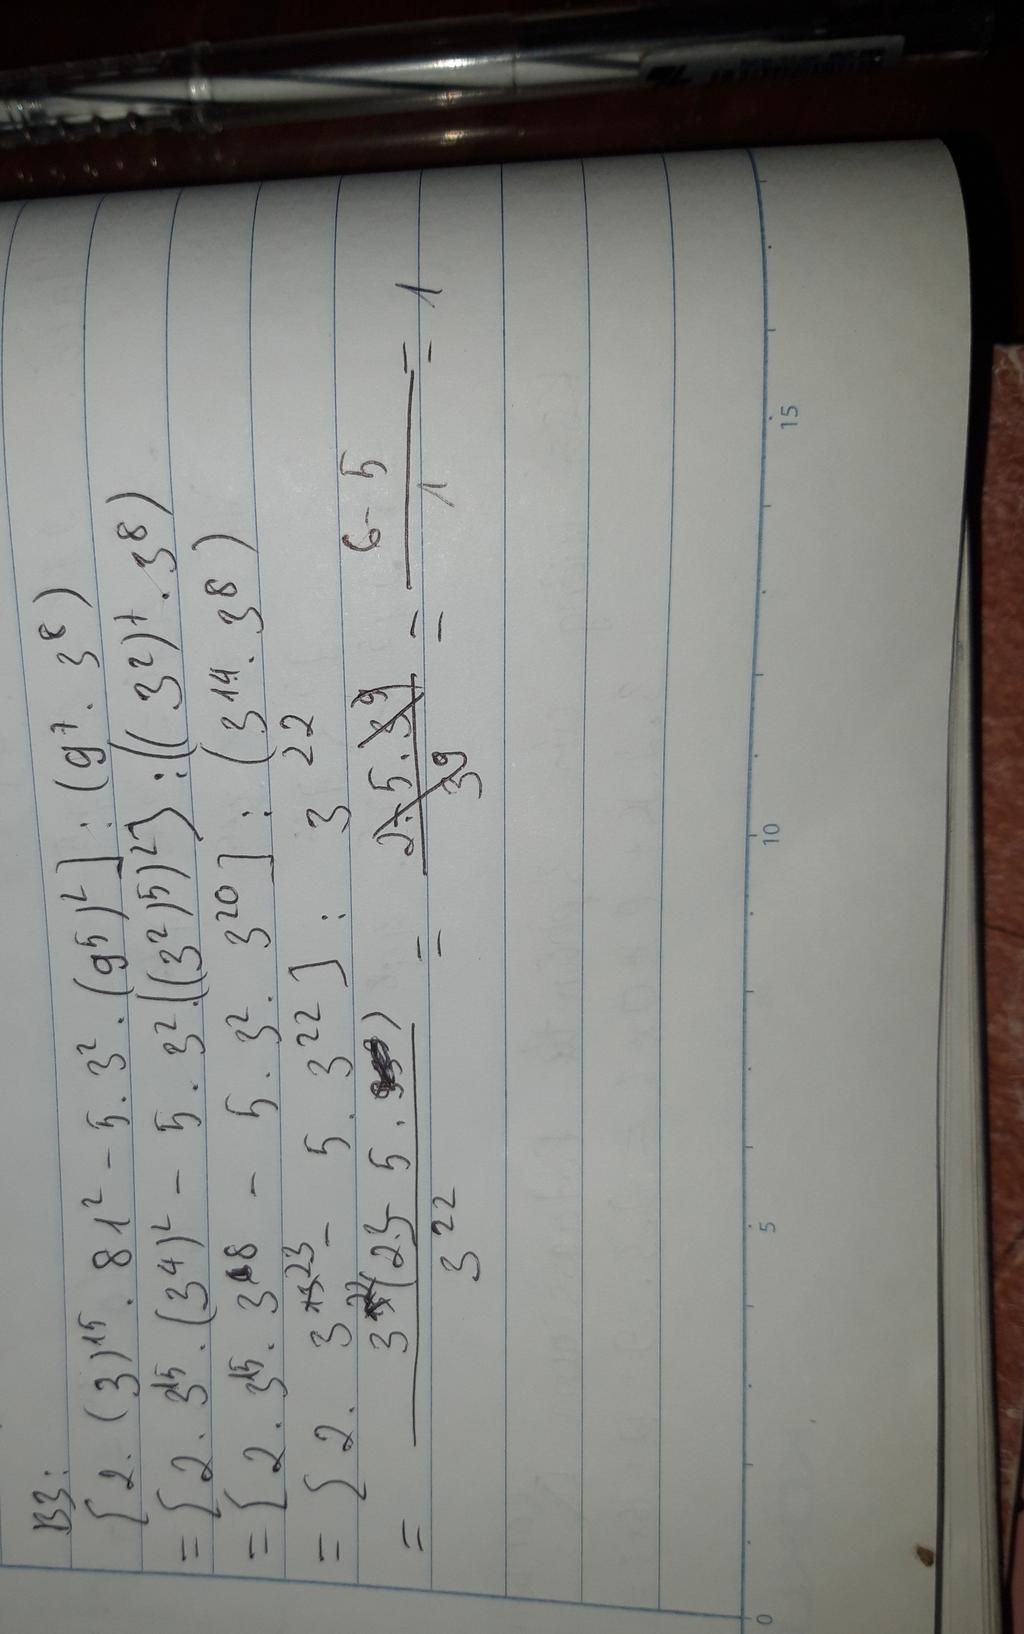 B3:
[2.(3)¹⁵.81² - 5.3².(9⁵)²] : (9⁷.3⁸)
= [2.3¹⁵.(3⁴)² - 5.3².((3²)⁵)²] : ((3²)⁷.3⁸)
= [2.3¹⁵.3⁸ - 5.3².3²⁰] : (3¹⁴.3⁸)
= [2.3²³ - 5.3²²] : 3²²
= 3²²(2.3-5) / 3²² = = 6-5 / 1 = 1
0 5 10 15